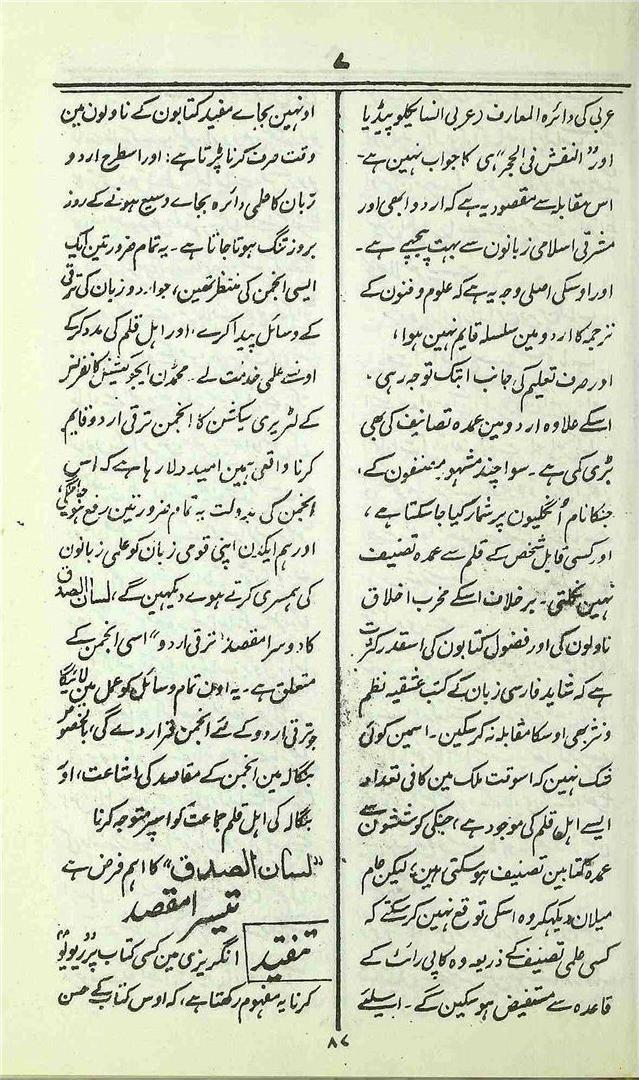 ۷
عربی کی دائرہ المعارف (عربی انسایکلوپیڈیا
اور "النقش فی الحجر" ہی کا جواب نہین ہے۔
اس مقابلہ سے مقصود یہ ہے کہ اردو ابھی اور
مشرقی اسلامی زبانون سے بہت پیچھے ہے۔
اور اوسکی اصلی وجہ یہ ہے کہ علوم و فنون کے
ترجمہ کا اردو مین سلسلہ قایم نہین ہوا،
اور صرف تعلیم کی جانب ابتک توجہ رہی،
اسکے علاوہ اردو مین عمدہ تصانیف کی بھی
بڑی کمی ہے۔ سوا چند مشہور مصنفون کے،
جنکا نام اُنگلیون پر شمار کیا جا سکتا ہے،
اور کسی قابل شخص کے قلم سے عمدہ تصنیف
نہین نکلتی۔ برخلاف اسکے مخرب اخلاق
ناولون کی اور فضول کتابون کی اسقدر کثرت
ہے کہ شاید فارسی زبان کے کتب عشقیہ نظم
و نثر بھی اوسکا مقابلہ نہ کر سکین۔ اسمین کوئی
شک نہین کہ اسوقت ملک مین کافی تعداد
ایسے اہل قلم کی موجود ہے، جنکی کوششون سے
عمدہ کتابین تصنیف ہو سکتی ہین، لیکن عام
میلان دیکھکر وہ اسکی توقع نہین کر سکتے کہ
کسی علمی تصنیف کے ذریعہ وہ کاپی رائٹ کے
قاعدہ سے مستفیض ہو سکین گے۔ اسلئے
اونہین بجاے مفید کتابون کے ناولون مین
وقت صرف کرنا پڑتا ہے: اور اسطرح اردو
زبان کا علمی دائرہ بجاے وسیع ہونے کے روز
بروز تنگ ہوتا جاتا ہے۔ یہ تمام ضرورتین ایک
ایسی انجمن کی منتظر تھین، جو اردو زبان کی ترقی
کے وسائل پیدا کرے، اور اہل قلم کی مدد کر کے
اونسے علمی خدمت لے۔ محمڈن ایجوکیشنل کانفرنس
کے لٹریری سیکشن کا انجمن ترقی اردو قایم
کرنا واقعی ہمین امید دلا رہا ہے کہ اس
انجمن کی بدولت یہ تمام ضرورتین رفع ہو جائینگی،
اور ہم ایکدن اپنی قومی زبان کو علمی زبانون
کی ہمسری کرتے ہوے دیکھین گے، لسان الصدق
کا دوسرا مقصد "ترقی اردو" اسی انجمن کے
متعلق ہے۔ یہ اون تمام وسائل کو عمل مین لائیگا
جو ترقی اردو کے لئے انجمن قرار دے گی، بالخصوص
بنگالہ مین انجمن کے مقاصد کی اشاعت، اور
بنگالہ کی اہل قلم جماعت کو اسپر متوجہ کرنا
"لسان الصدق" کا اہم فرض ہے
تیسرا مقصد
تنقید
انگریزی مین کسی کتاب پر "ریویو"
کرنا یہ مفہوم رکھتا ہے، کہ اوس کتاب کے حسن
۸۷